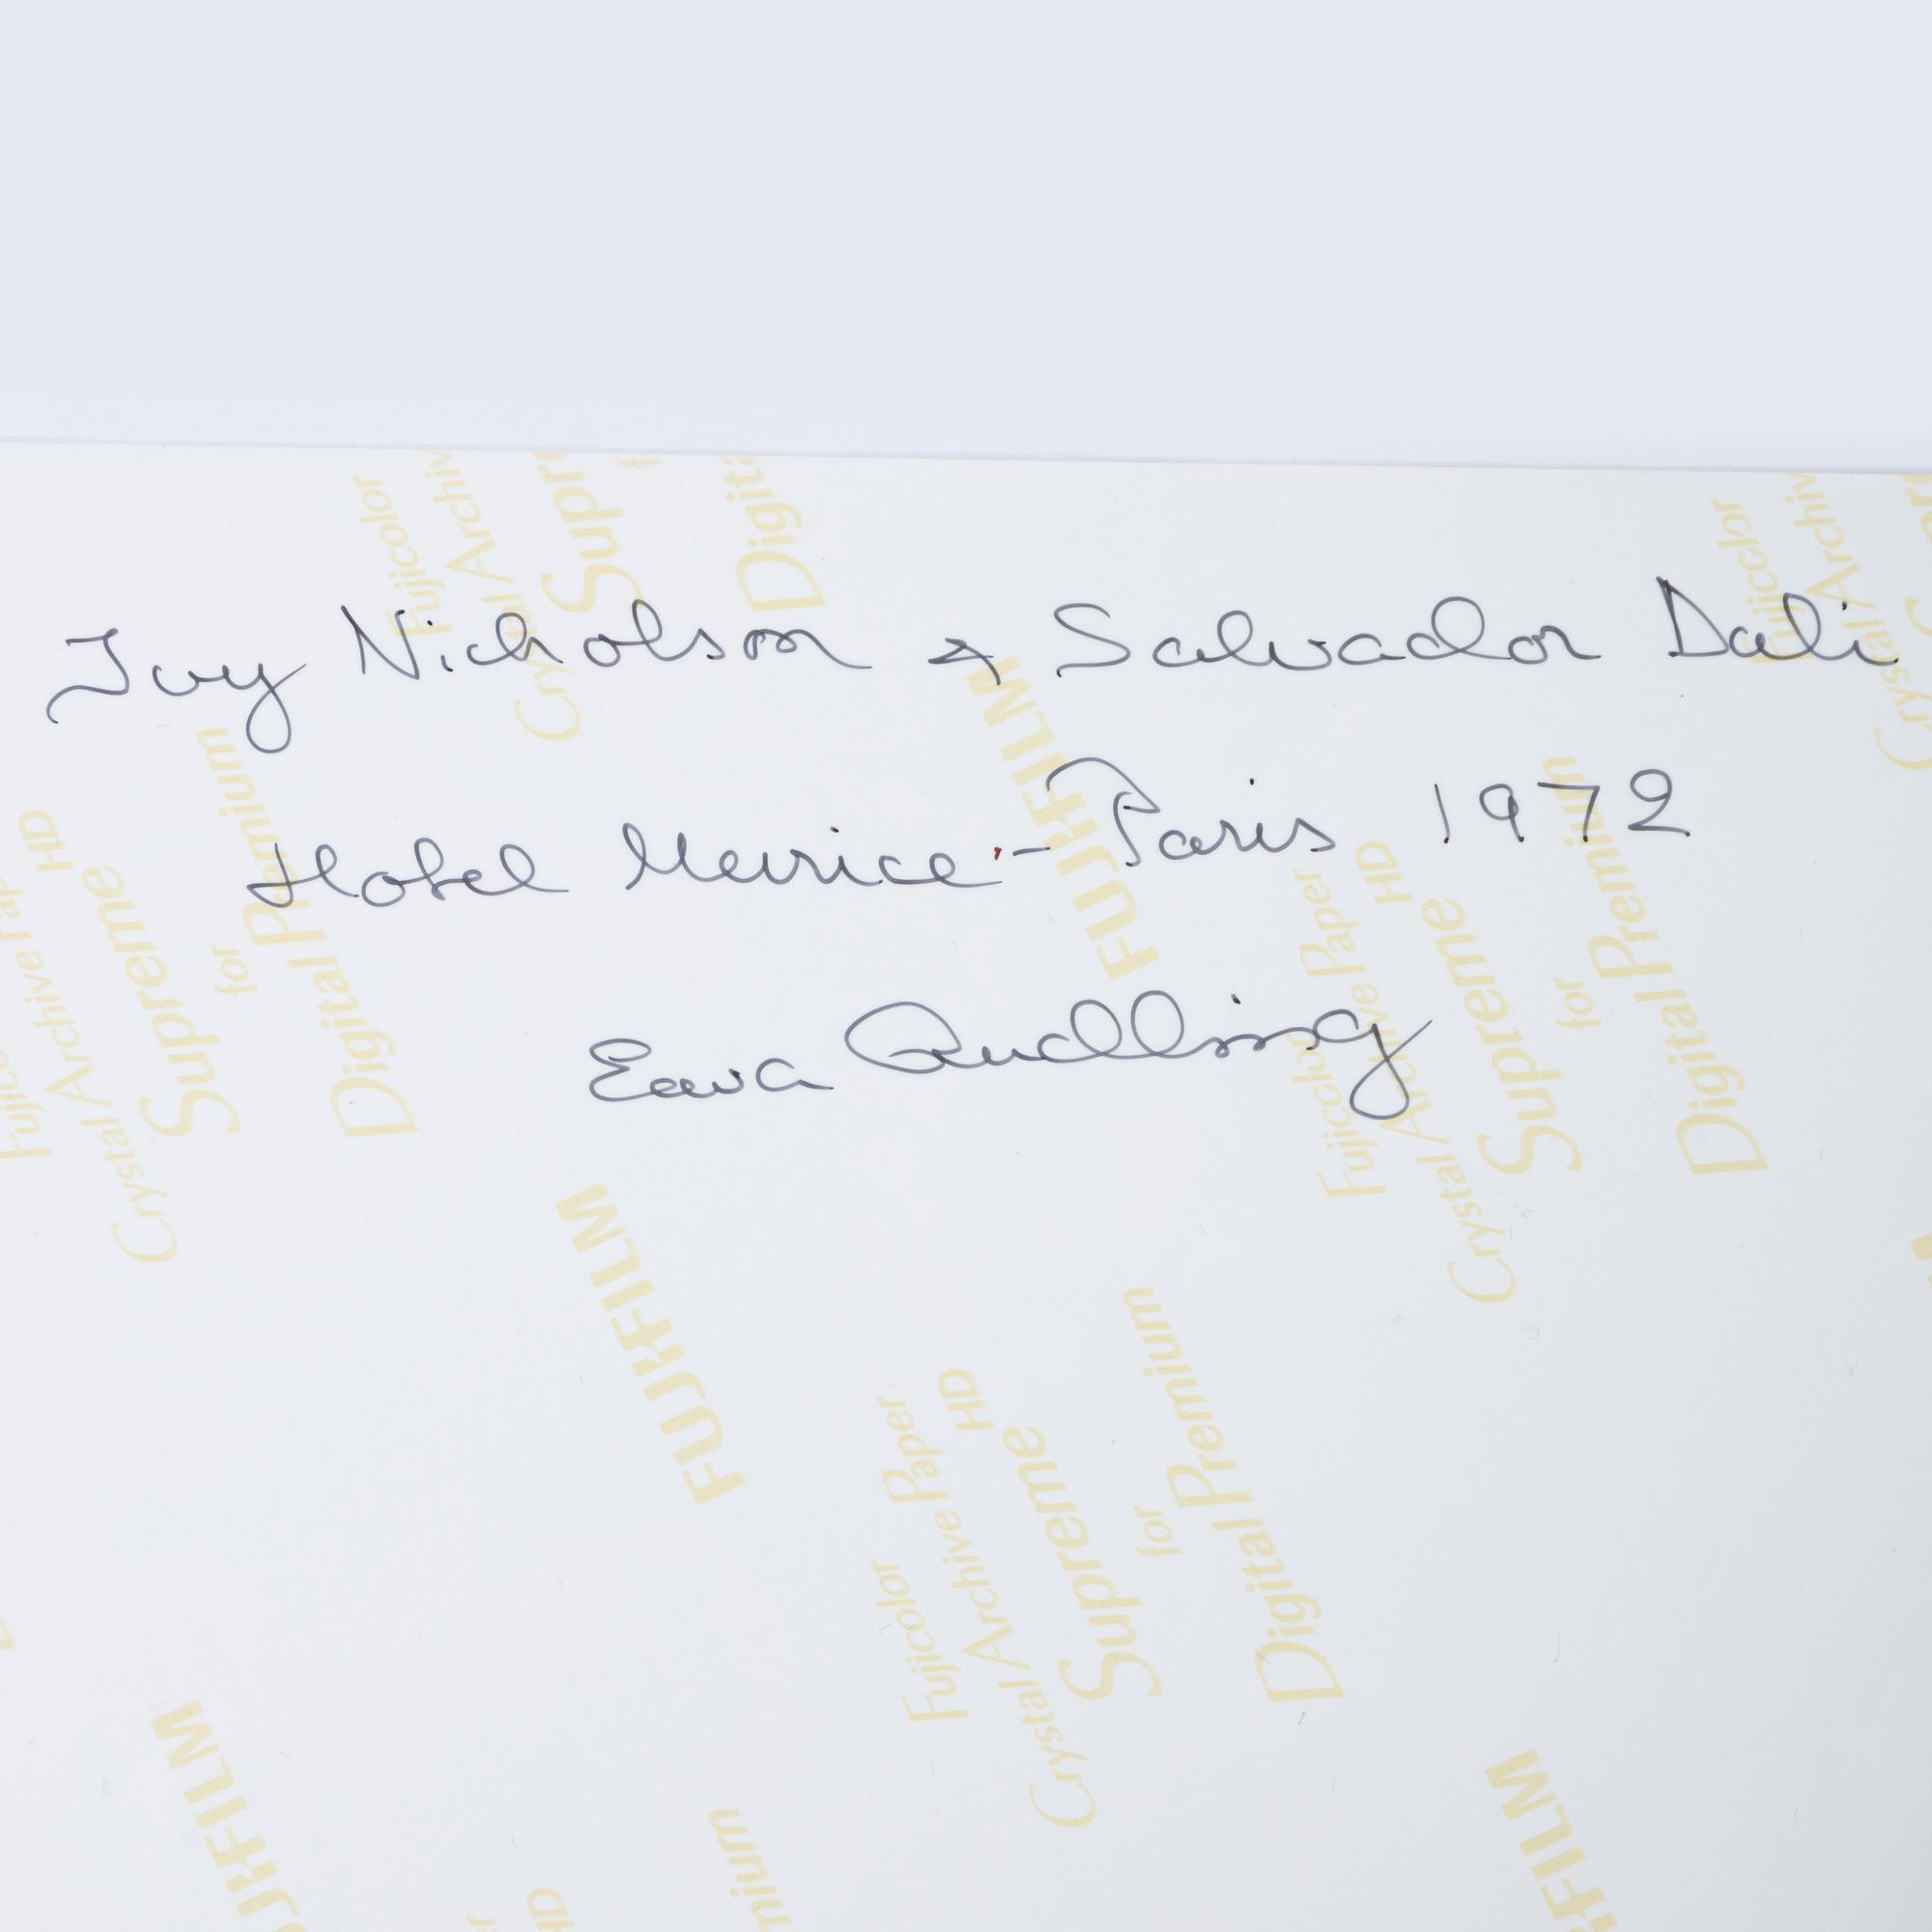 Ivy Nicholson & Salvador Dali
Hotel Meurice - Paris 1972
Ewa Rudling
FUJIFILM
Fujicolor
Crystal Archive Paper
Supreme HD
for
Digital Premium
FUJIFILM
Fujicolor
Crystal Archive Paper
Supreme HD
for
Digital Premium
Fujicolor
Crystal Archive Paper
Supreme HD
for
Digital Premium
FUJIFILM
FUJIFILM